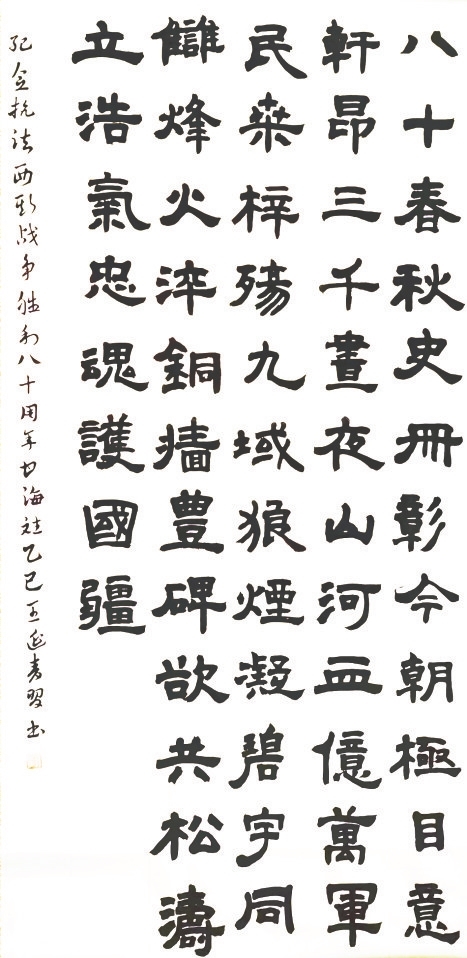 八十春秋史冊彰今朝極目意
軒昂三千晝夜山河血億萬軍
民桑梓殤九域狼煙凝碧宇同
讎烽火淬銅墻豊碑欲共松濤
立浩氣忠魂護國疆
纪念抗法西斯战争胜利八十周年 乙巳王延青书